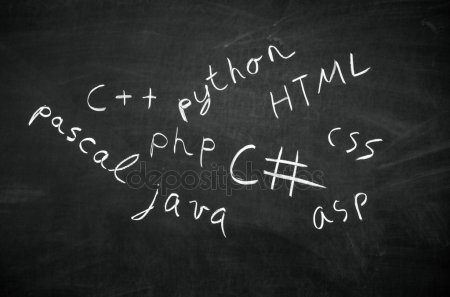 python
HTML
C++
pascal
php
C#
css
java
asp
depositphotos